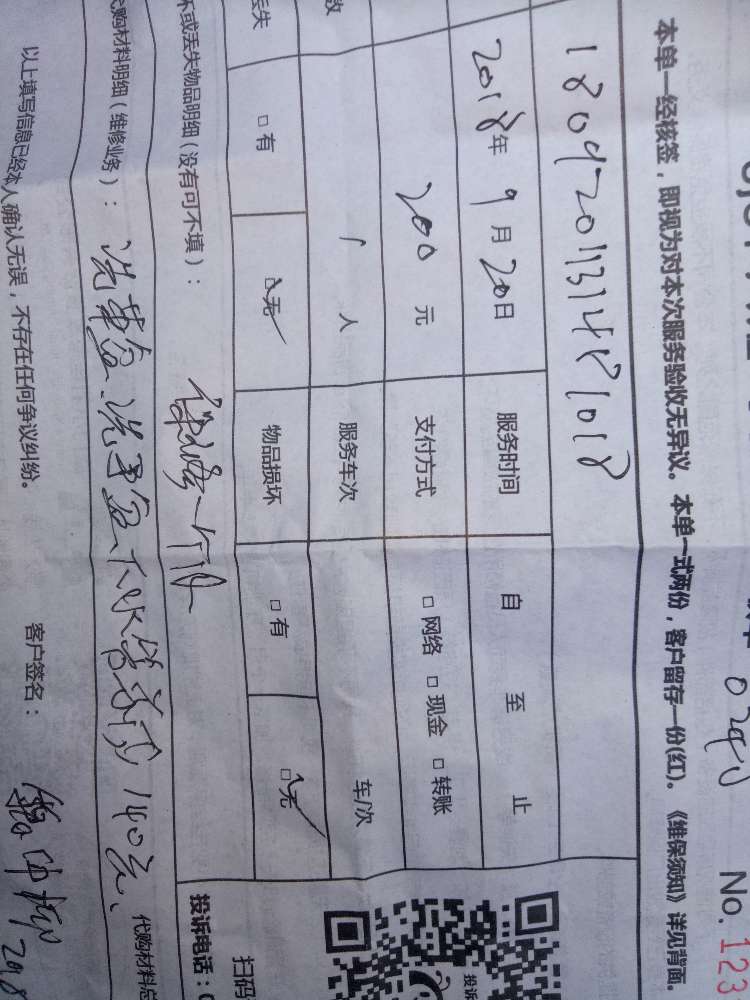 No. 123
本单一经核签，即视为对本次服务验收无异议。本单一式两份，客户留存一份(红)。《维保须知》详见背面。
1809201131481018
2018年9月20日 服务时间 自 至 止
200元 支付方式 □网络 □现金 □转账
数 1人 服务车次 车/次
丢失 □有 □无 物品损坏 □有 □无
坏或丢失物品明细(没有可不填)：
代购材料明细(维修业务)： 洗菜盆、洗手盆下水 140元、 代购材料总
以上填写信息已经本人确认无误，不存在任何争议纠纷。 客户签名：
扫码
投诉电话：0
投诉